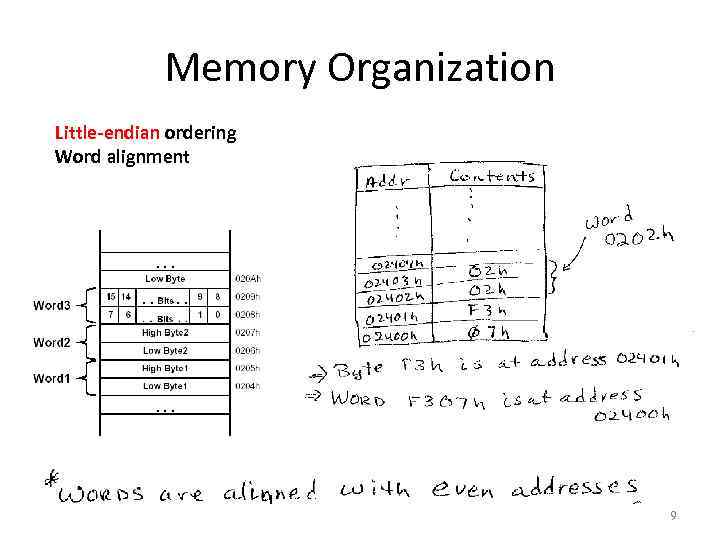 Memory Organization
Little-endian ordering
Word alignment
Addr Contents
word
0202h
...
Low Byte 020Ah
15 14 ..Bits.. 9 8 0209h
Word3
7 6 ..Bits.. 1 0 0208h
High Byte2 0207h
Word2
Low Byte2 0206h
High Byte1 0205h
Word1
Low Byte1 0204h
...
02404h
02403h 02h
02402h 02h
02401h F3h
02400h 07h
⇒ Byte F3h is at address 02401h
⇒ WORD F307h is at address
02400h
*WORDS are aligned with even addresses
9